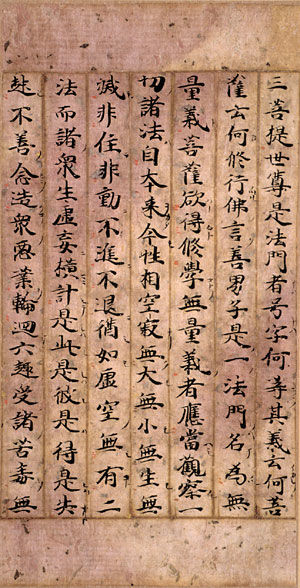 三菩提世尊是法門者号字何等其義云何菩
薩云何修行佛言善男子是一法門名為無
量義菩薩欲得修學無量義者應當觀察一
切諸法自本來今性相空寂無大無小無生無
滅非住非動不進不退猶如虛空無有二
法而諸衆生虛妄橫計是此是彼是得是失
起不善念造衆惡業輪迴六趣受諸苦毒無